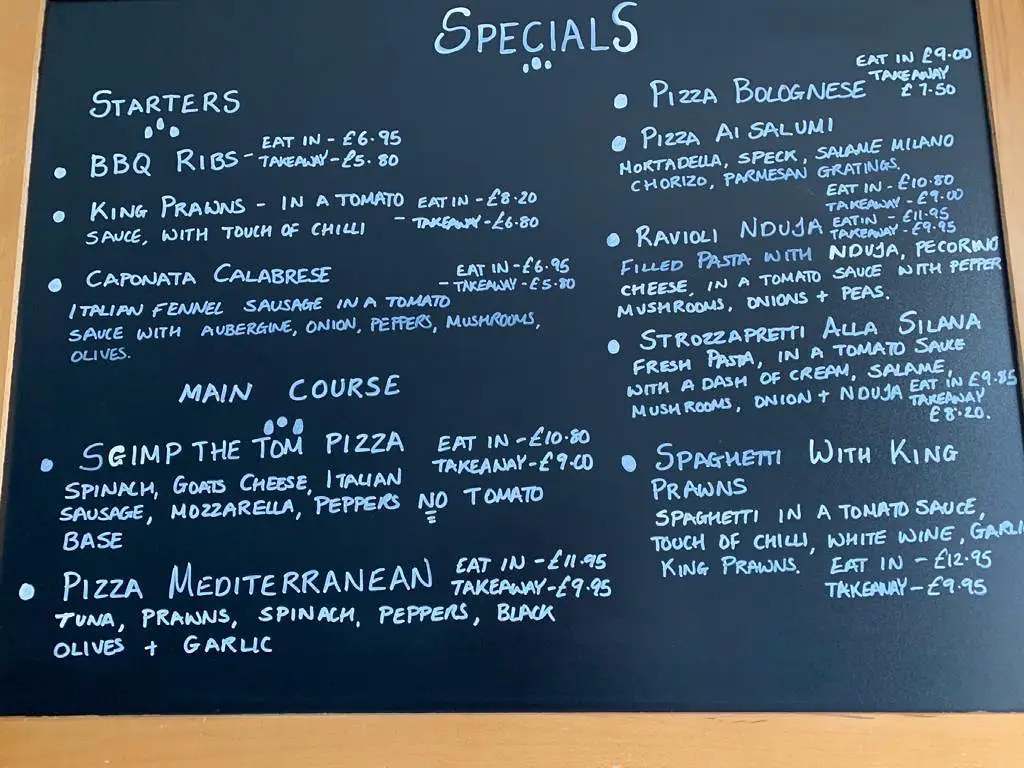 SPECIALS
STARTERS
• BBQ RIBS - EAT IN - £6.95
TAKEAWAY - £5.80
• KING PRAWNS - IN A TOMATO EAT IN - £8.20
SAUCE, WITH TOUCH OF CHILLI - TAKEAWAY - £6.80
• CAPONATA CALABRESE EAT IN - £6.95
- TAKEAWAY - £5.80
ITALIAN FENNEL SAUSAGE IN A TOMATO
SAUCE WITH AUBERGINE, ONION, PEPPERS, MUSHROOMS,
OLIVES.
MAIN COURSE
• SGIMP THE TOM PIZZA EAT IN - £10.80
TAKEAWAY - £9.00
SPINACH, GOATS CHEESE, ITALIAN
SAUSAGE, MOZZARELLA, PEPPERS NO TOMATO
BASE
• PIZZA MEDITERRANEAN EAT IN - £11.95
TAKEAWAY - £9.95
TUNA, PRAWNS, SPINACH, PEPPERS, BLACK
OLIVES + GARLIC
• PIZZA BOLOGNESE EAT IN £9.00
TAKEAWAY
£7.50
• PIZZA AI SALUMI
MORTADELLA, SPECK, SALAME MILANO
CHORIZO, PARMESAN GRATINGS.
EAT IN - £10.80
TAKEAWAY - £9.00
• RAVIOLI NDUJA EAT IN - £11.95
TAKEAWAY - £9.95
FILLED PASTA WITH NDUJA, PECORINO
CHEESE, IN A TOMATO SAUCE WITH PEPPER
MUSHROOMS, ONIONS + PEAS.
• STROZZAPRETTI ALLA SILANA
FRESH PASTA, IN A TOMATO SAUCE
WITH A DASH OF CREAM, SALAME,
MUSHROOMS, ONION + NDUJA EAT IN £9.85
TAKEAWAY
£8.20.
• SPAGHETTI WITH KING
PRAWNS
SPAGHETTI IN A TOMATO SAUCE,
TOUCH OF CHILLI, WHITE WINE, GARLI
KING PRAWNS. EAT IN - £12.95
TAKEAWAY - £9.95